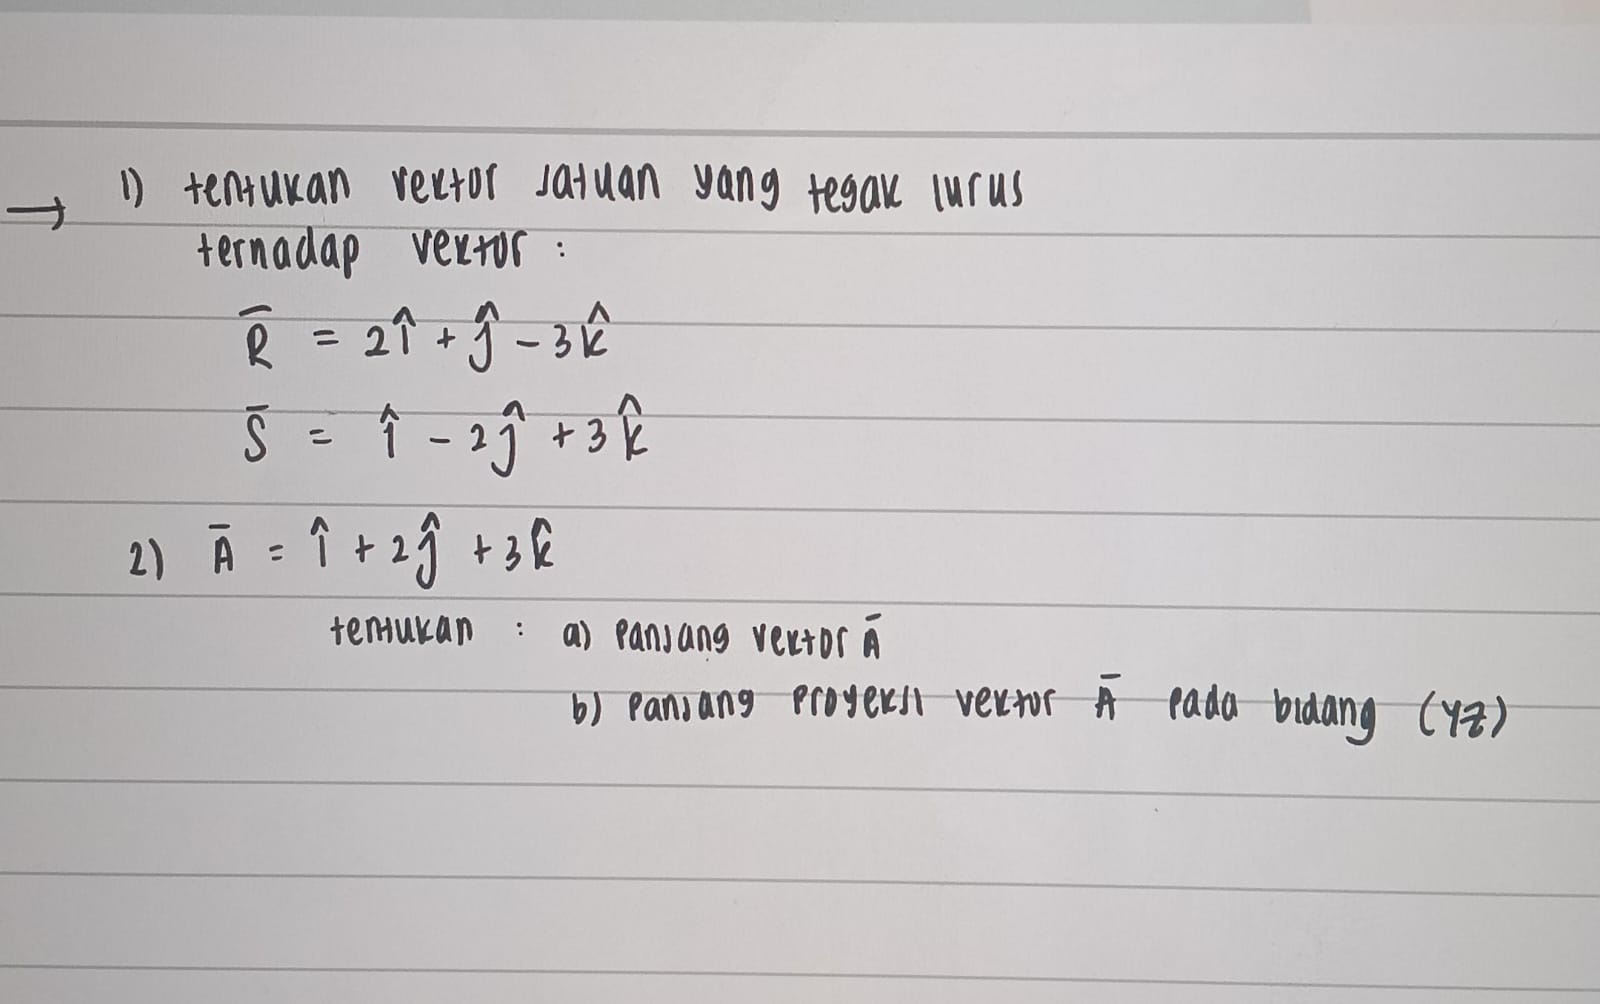 → 1) tentukan vektor satuan yang tegak lurus
terhadap vektor :
R̄ = 2î + ĵ - 3k̂
S̄ = î - 2ĵ + 3k̂
2) Ā = î + 2ĵ + 3k̂
tentukan : a) Panjang vektor Ā
b) Panjang Proyeksi vektor Ā pada bidang (YZ)